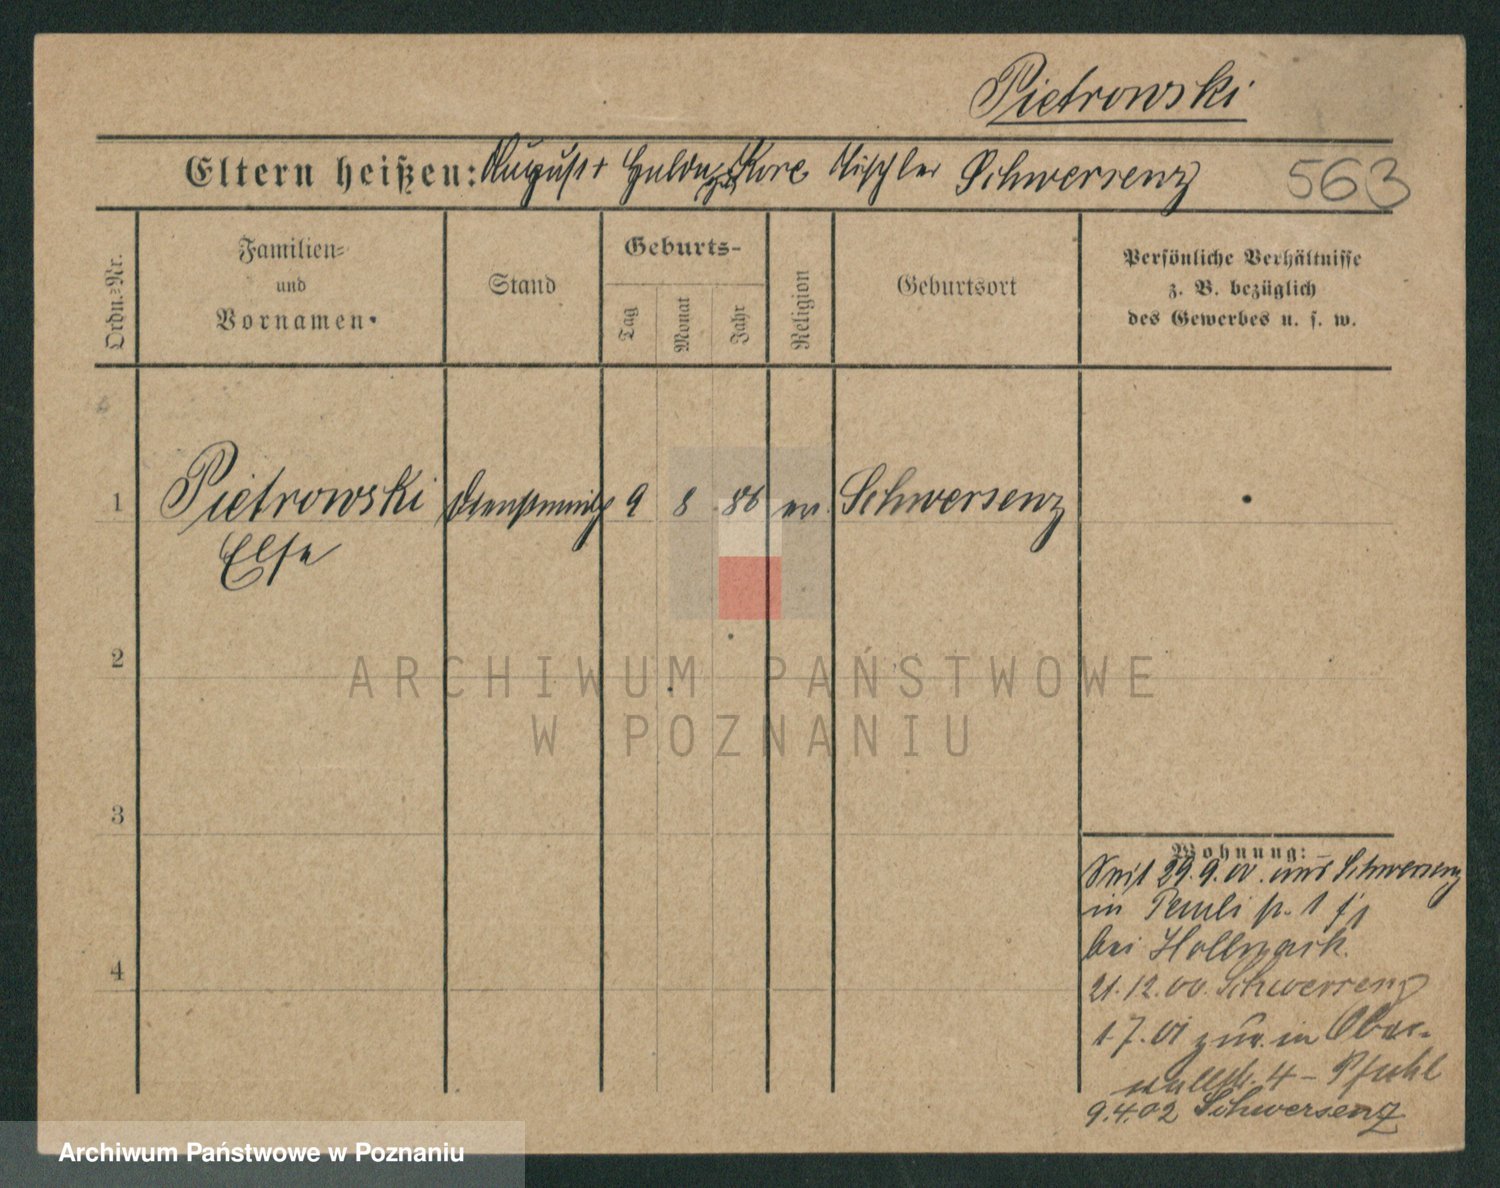 Pietrowski
Eltern heißen: August Hulda Kore Tischler Schwersenz 563
Ordn.=Nr.
Familien=
und
Vornamen.
Stand
Geburts-
Tag
Monat
Jahr
Religion
Geburtsort
Persönliche Verhältnisse
z. B. bezüglich
des Gewerbes u. s. w.
1 Pietrowski Dienstmäd 9 8 86 ev. Schwersenz
Else
2
ARCHIWUM PAŃSTWOWE
W POZNANIU
3
Wohnung:
Seit 29.9.00. aus Schwersenz
in 1
bei
4
21.12.00. Schwersenz
1.7.01 zur. in Ober-
wallstr. 4 - Pfuhl
9.4.02 Schwersenz
Archiwum Państwowe w Poznaniu